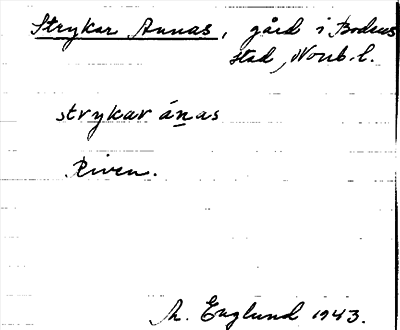 Strykar Annas, gård i Bodens
stad, Norrb. l.
strykar ánas
Riven.
h. Englund 1943.